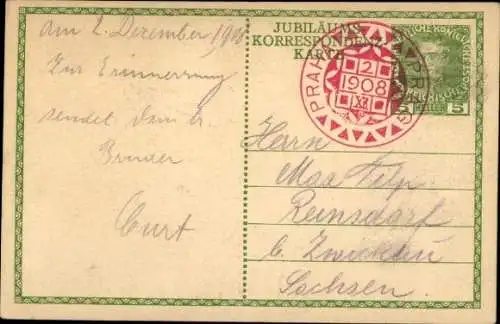 am 2. Dezember 1908
Zur Erinnerung
sendet Dein l.
Bruder
Curt
JUBILÄUMS
KORRESPONDENZ
KARTE
PRAHA PRAG
2
1908
XII
5 5
Herrn
Max
Reinsdorf
b. Zwickau
Sachsen.